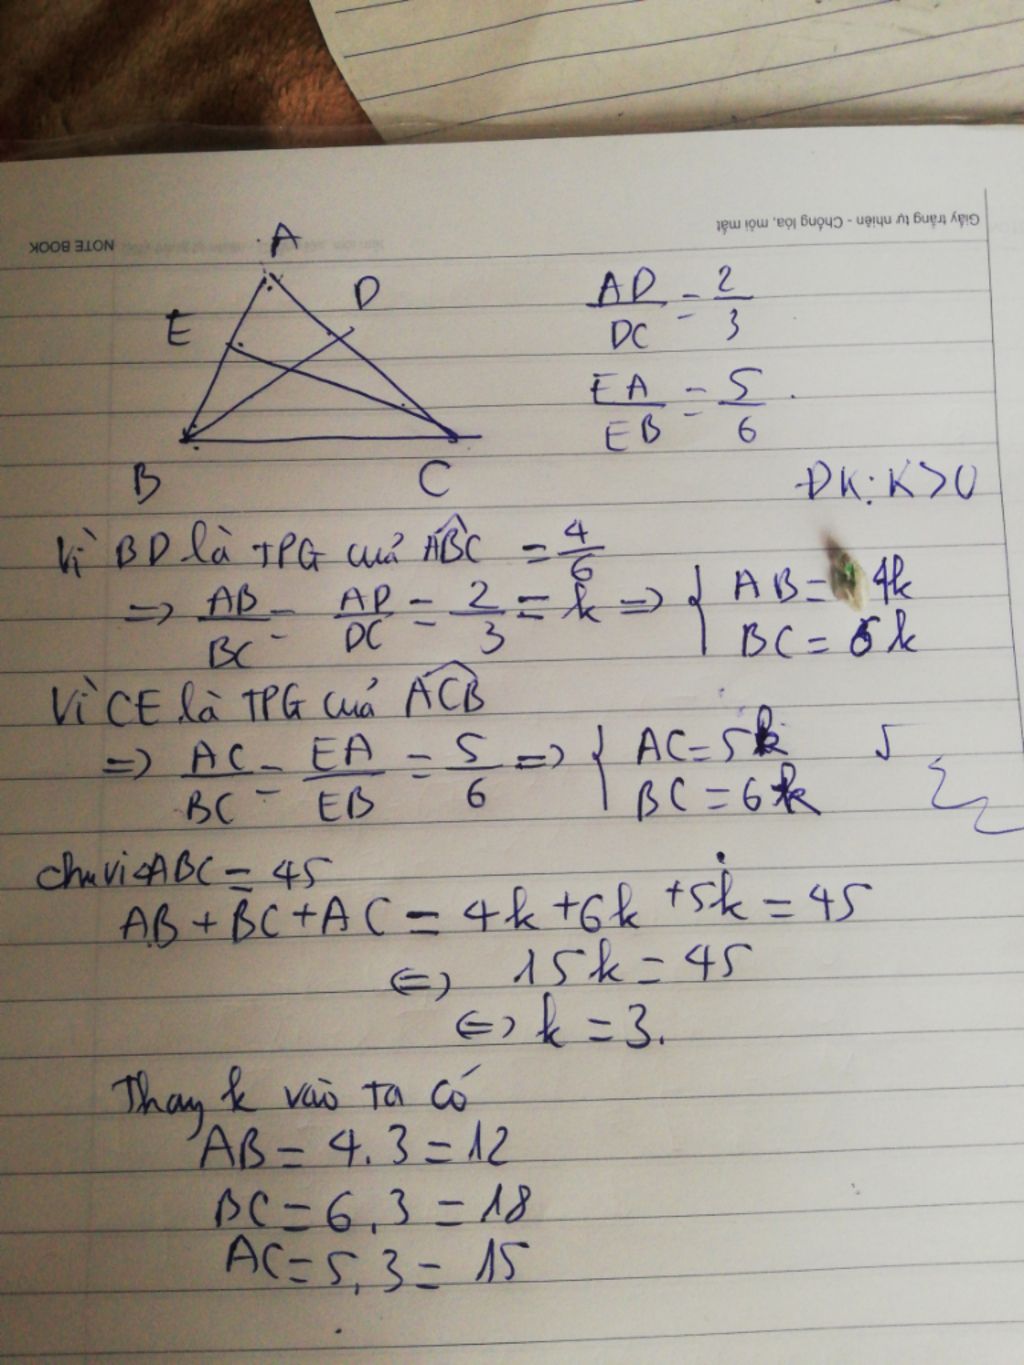 NOTE BOOK
Giấy trắng tự nhiên - Chống lóa, mỏi mắt
A
D
E
B
C
AD/DC = 2/3
EA/EB = 5/6
ĐK: K>0
Vì BD là TPG của ABC = 4/6
=> AB/BC = AD/DC = 2/3 = k => { AB = 4k
BC = 6k
Vì CE là TPG của ACB
=> AC/BC = EA/EB = 5/6 => { AC = 5k
BC = 6k
5
Chu vi ABC = 45
AB + BC + AC = 4k + 6k + 5k = 45
<=> 15k = 45
<=> k = 3.
Thay k vào ta có
AB = 4.3 = 12
BC = 6.3 = 18
AC = 5.3 = 15